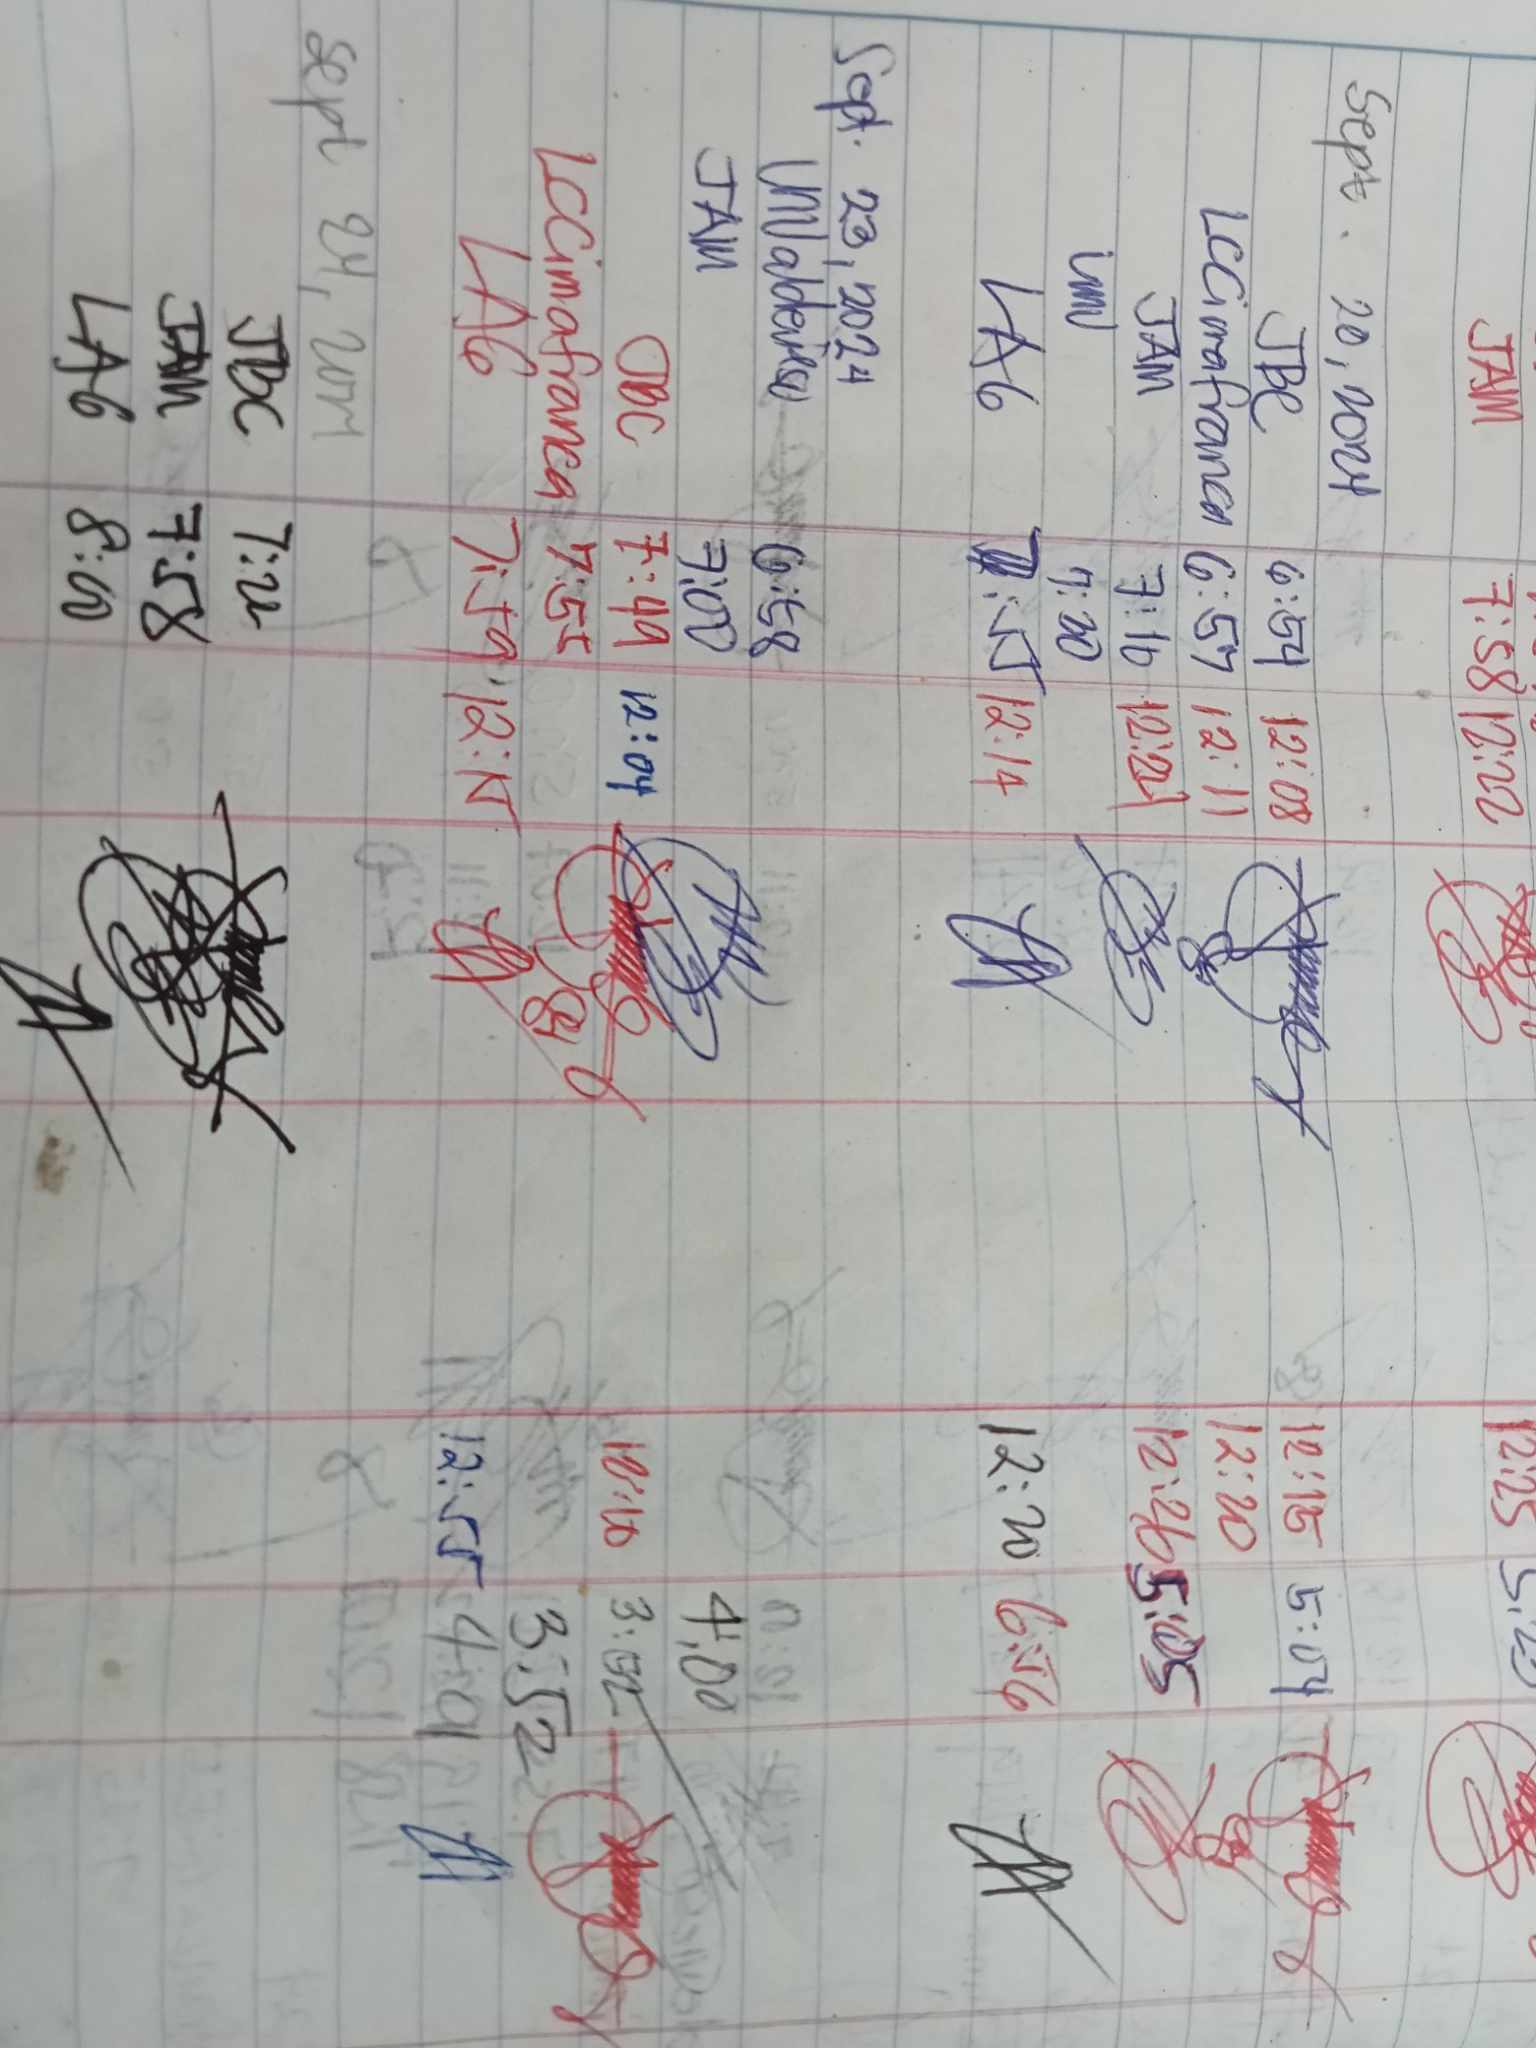 JAM 7:58 12:22 12:25
Sept. 20, 2024
JBC 6:54 12:08 12:15 5:04
LCCimafranca 6:57 12:11 12:20
JAM 7:16 12:24 12:26 5:05
7:20
LAG 12:14 12:20 6:56
Sept. 23, 2024
6:58
JAM 7:00 4:00
JBC 7:49 12:04 12:10 3:02
LCCimafranca 7:55 3:52
LAG 7:59 12:15 12:55 4:01
Sept 24, 2024
JBC
JAM 7:58
LAG 8:00